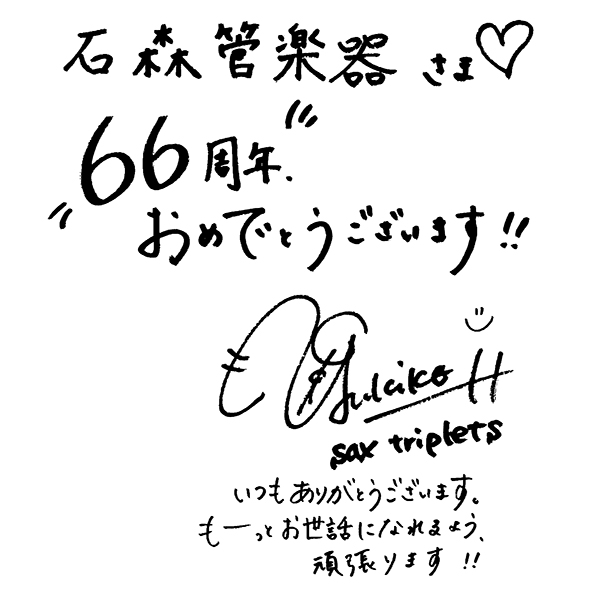 石森管楽器 さま♡
66周年、
おめでとうございます!!
sax triplets
いつもありがとうございます。
もーっとお世話になれるよう、
頑張ります!!